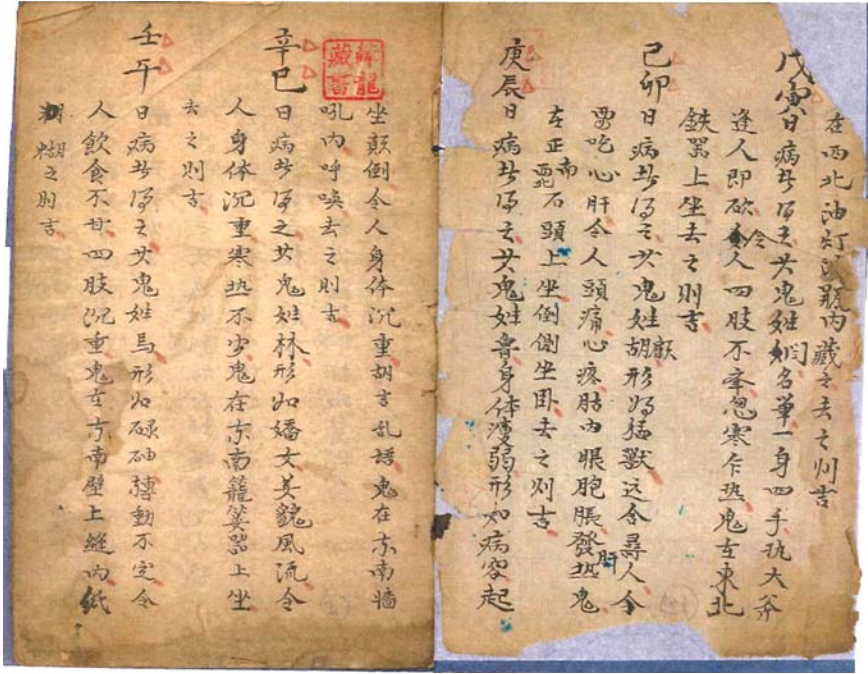 在西北油灯㦯瓶内藏之去之则吉
戊寅日病者得之其鬼姓名单一身四手执大斧
逢人即砍令人四肢不牵忽寒乍热鬼在東北
鉄器上坐去之则吉
己卯日病者得之其鬼姓胡形如猛獸远含尋人令
要吃心肝令人頭痛心疼肚内眼胞脹發热鬼
在正南石頭上坐倒側坐卧去之则吉
庚辰日病者得之其鬼姓魯身体瘦弱形如病容起
坐顛倒令人身体沉重胡言乱語鬼在东南牆
吼内呼唤去之则吉
辛巳日病者得之其鬼姓林形如嬌女美貌風流令
人身体沉重寒热不少鬼在东南籠箕器上坐
去之则吉
壬午日病者得之其鬼姓馬形如碌砷轉動不定令
人飲食不甘四肢沉重鬼在东南壁上縫内紙
糊之则吉
龍藏書